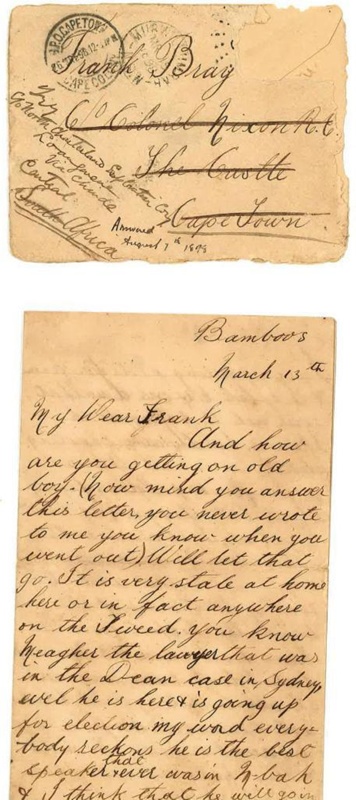 G.P.O. CAPETOWN
CAPE COLONY
Frank Bray
C/o Colonel Nixon R.E.
The Castle
Cape Town
C/o North Charterland Exploration Coy
via Chinde
Central
South Africa
Answered
August 7th 1898
Bamboos
March 13th
My Dear Frank
And how
are you getting on old
boy. (Now mind you answer
this letter, you never wrote
to me you know when you
went out) Will let that
go. It is very stale at home
here or in fact anywhere
on the Tweed. You know
Meagher the lawyer that was
in the Dean case in Sydney,
well he is here & is going up
for election my word every-
body reckons he is the best
speaker that ever was in M-bah
& I think that he will go in